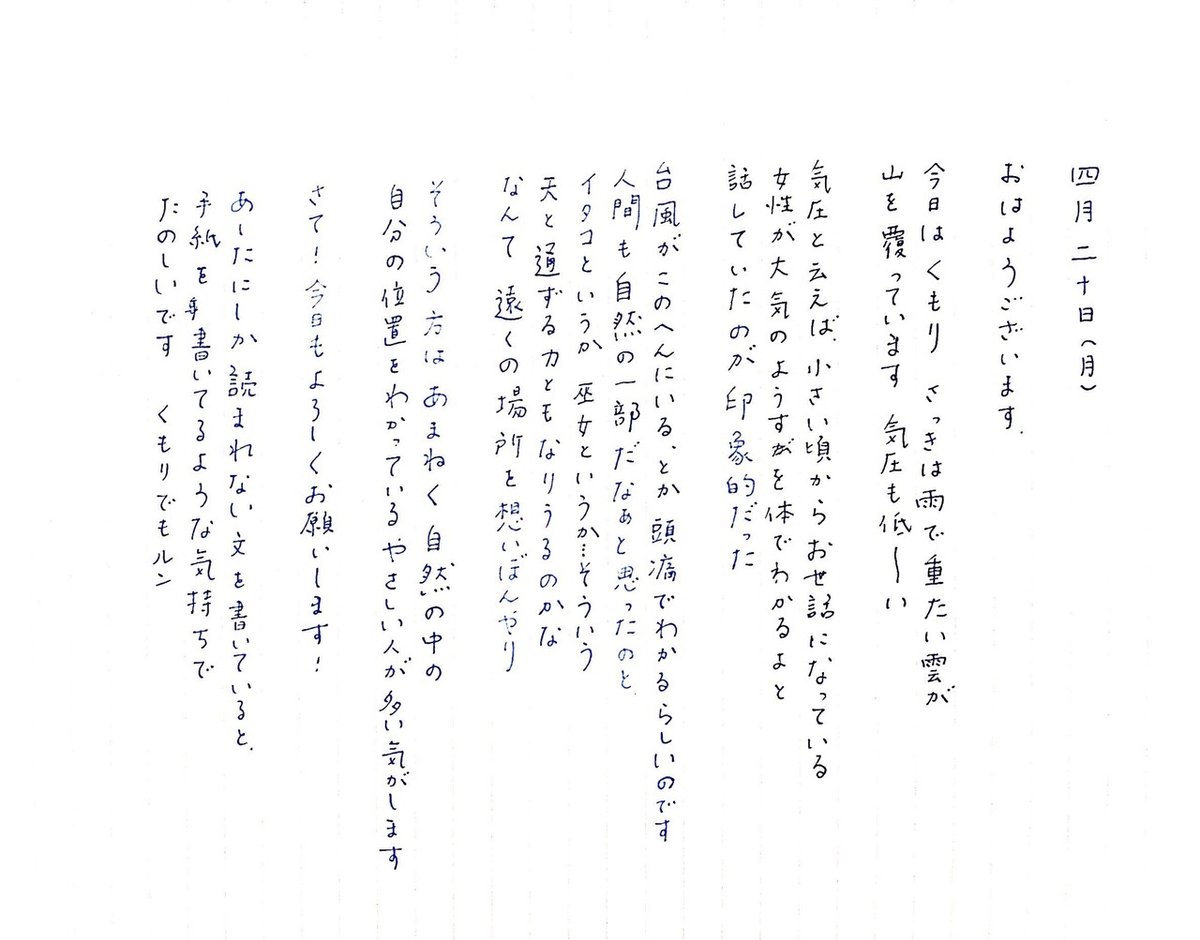 四月二十日(月)
おはようございます.
今日はくもり さっきは雨で重たい雲が
山を覆っています 気圧も低〜い
気圧と云えば、小さい頃からお世話になっている
女性が大気のようすがを体でわかるよと
話していたのが印象的だった
台風がこのへんにいる、とか頭痛でわかるらしいのです
人間も自然の一部だなぁと思ったのと、
イタコというか 巫女というか…そういう
天と通ずる力ともなりうるのかな
なんて 遠くの場所を想いぼんやり
そういう方はあまねく自然の中の
自分の位置をわかっている やさしい人が多い気がします
さて!今日もよろしくお願いします!
あーたにしか読まれない文を書いていると、
手紙を書いてるような気持ちで
たのしいです くもりでもルン